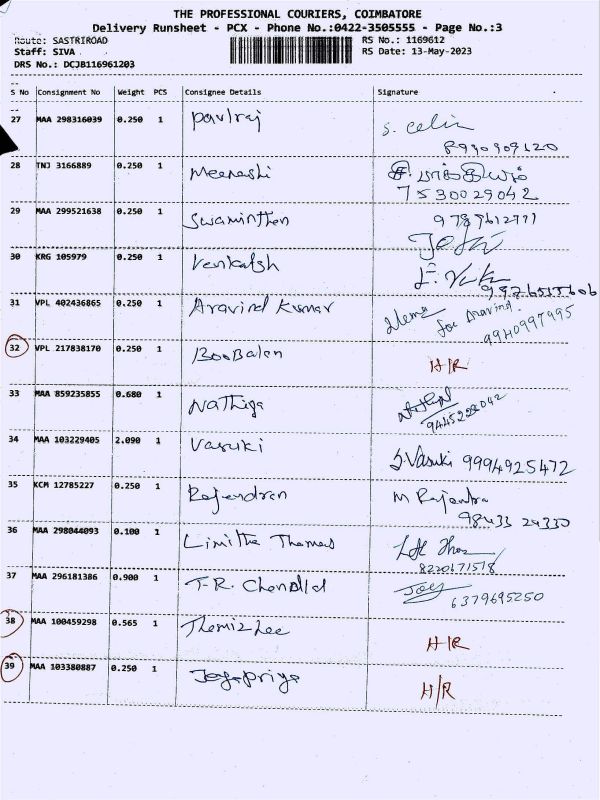 THE PROFESSIONAL COURIERS, COIMBATORE
Delivery Runsheet - PCX - Phone No.:0422-3505555 - Page No.:3
Route: SASTRIROAD RS No.: 1169612
Staff: SIVA RS Date: 13-May-2023
DRS No.: DCJB116961203
S No Consignment No Weight PCS Consignee Details Signature
27 MAA 298316039 0.250 1 Paulraj S. Celin
8990909120
28 TNJ 3166889 0.250 1 Meenashi
7530029042
29 MAA 299521638 0.250 1 Swaminthen
30 KRG 105979 0.250 1 Venkatsh
31 VPL 402436865 0.250 1 Aravind Kumar for Aravind.
9940997995
32 VPL 217838170 0.250 1 BooBalen H/R
33 MAA 859235855 0.680 1 Nathiya
34 MAA 103229405 2.090 1 Vasuki S.Vasuki 9994925472
35 KCM 12785227 0.250 1 Rajendren M Rajendra
98433 24330
36 MAA 298044093 0.100 1 Limitha Thomas
8220671518
37 MAA 296181386 0.900 1 T.R. Joey
6379695250
38 MAA 100459298 0.565 1 Themizhee H/R
39 MAA 103380887 0.250 1 Jeyapriya H/R